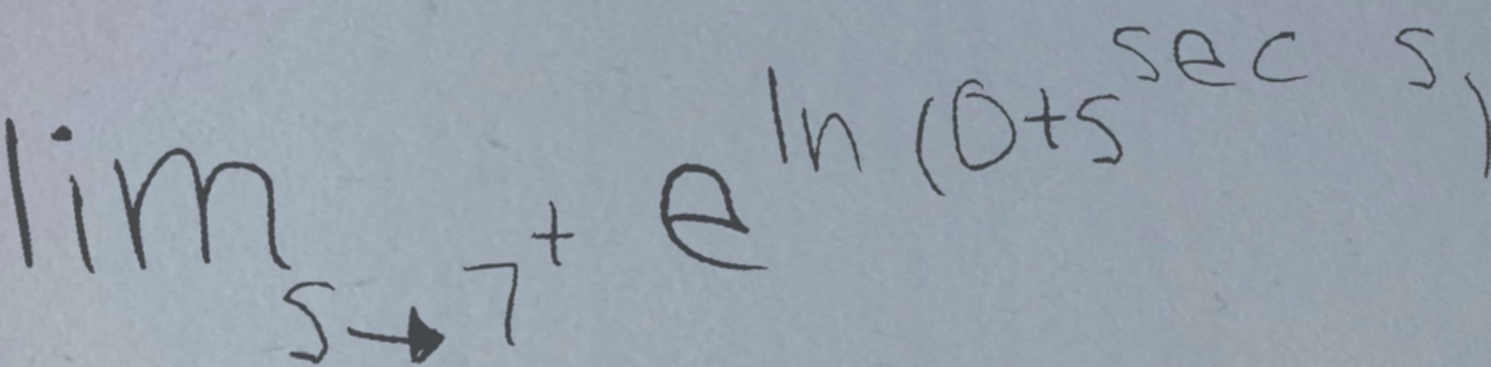 lim_{s→7^+} e^{ln(0+s^{sec s})}